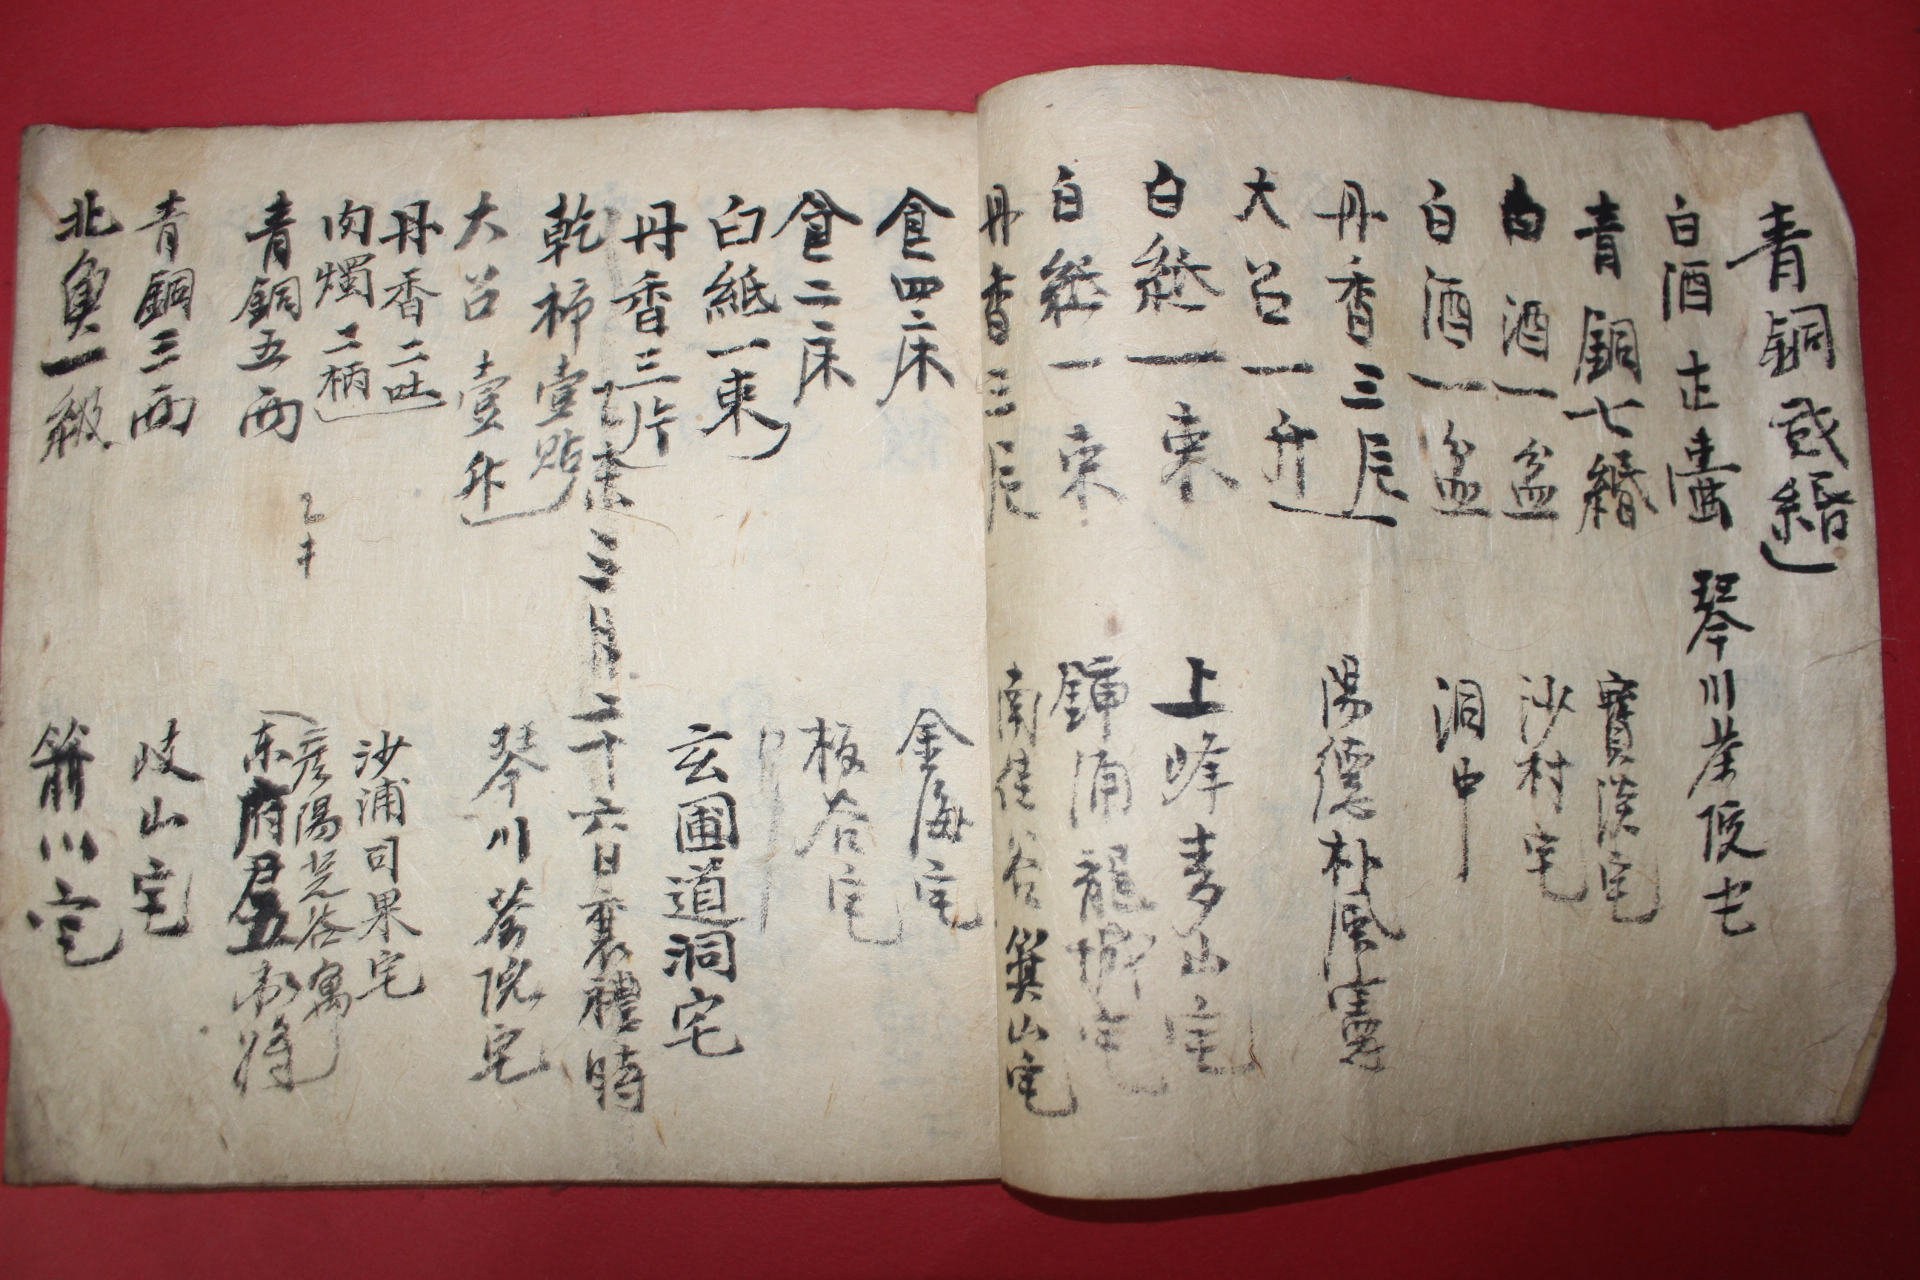 青銅貳緡
白酒壹壺 琴川茶后宅
青銅七緡 寶淡宅
白酒一盆 沙村宅
白酒一盆 洞中
丹香三辰 陽德朴風憲
大召一升
白紙一束 上峰 青山宅
白紙一束 浦龍城宅
丹香三辰 南佳谷箕山宅
食四床 金海宅
食二床 板谷宅
白紙一束
丹香三片 玄圃道洞宅
乙未三月二十六日襄禮時
乾柿壹貼
大召壹升 琴川茶院宅
丹香二吐 沙浦司果宅
肉燭二柄 彦陽芝谷寓
青銅五兩 东府君五衛將
青銅三兩 岐山宅
北魚一級 箭川宅